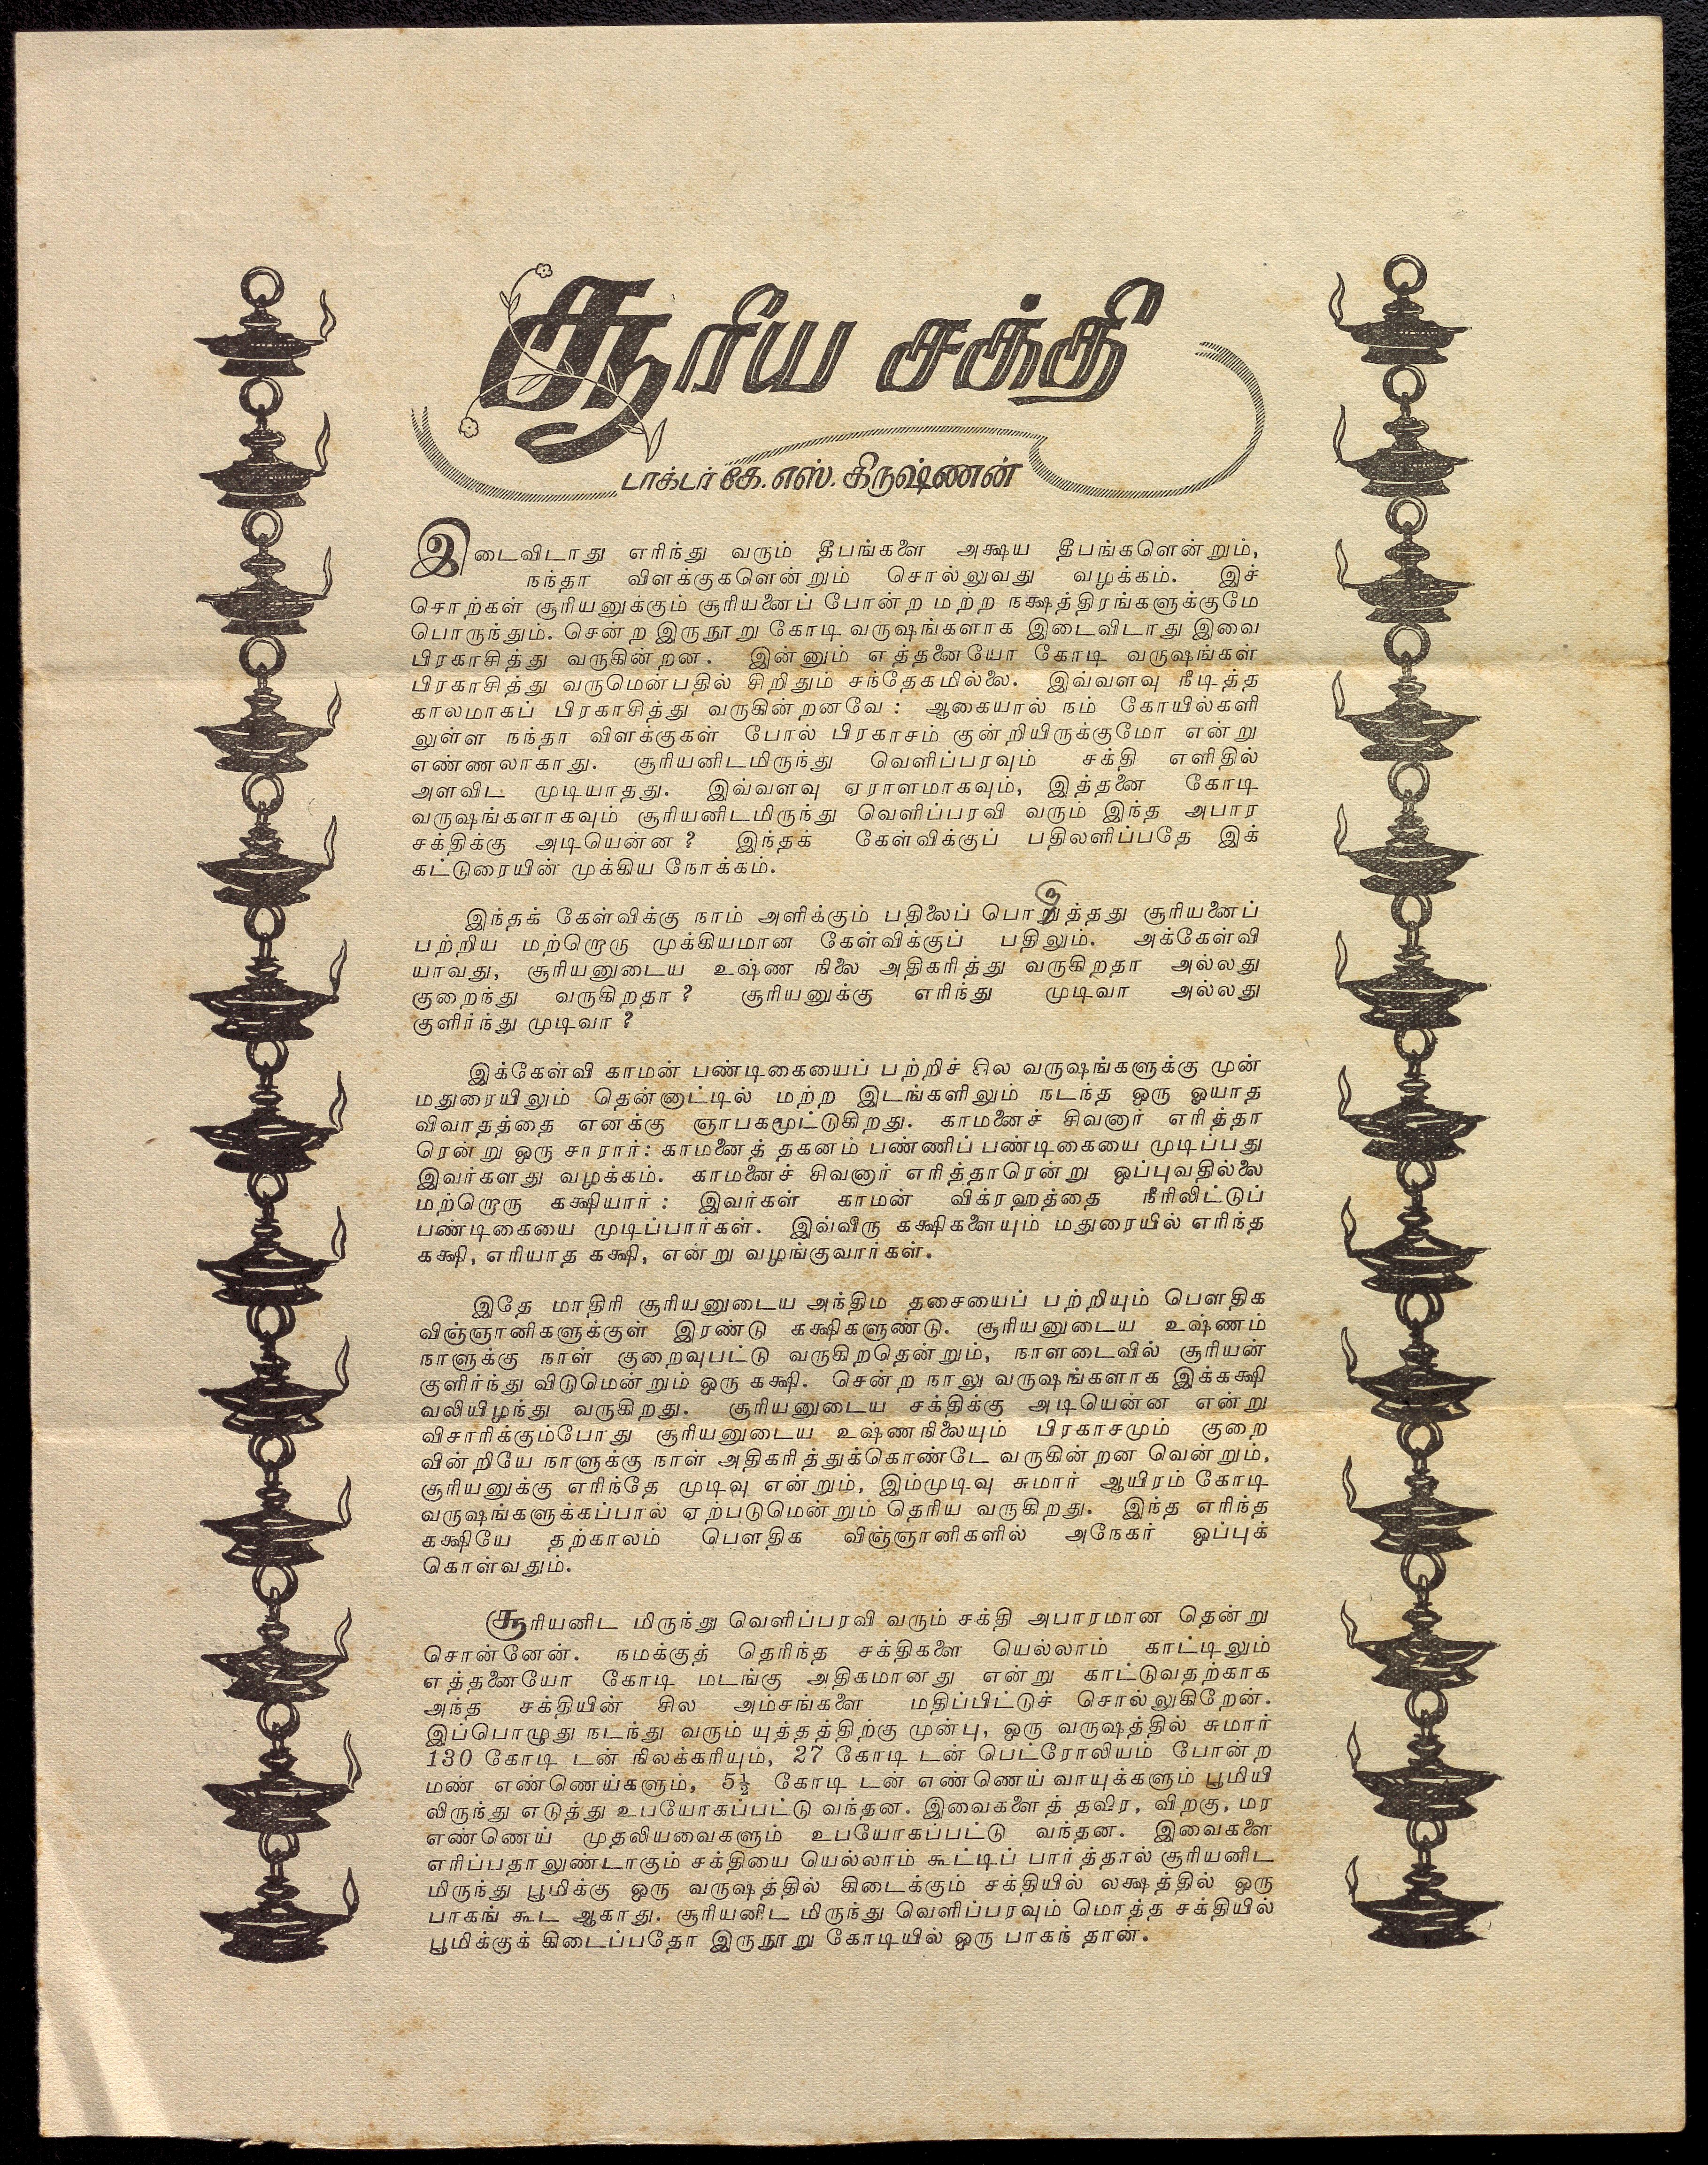 சூரிய சக்தி
டாக்டர் கே. எஸ். கிருஷ்ணன்
இடைவிடாது எரிந்து வரும் தீபங்களை அக்ஷய தீபங்களென்றும்,
நந்தா விளக்குகளென்றும் சொல்லுவது வழக்கம். இச்
சொற்கள் சூரியனுக்கும் சூரியனைப் போன்ற மற்ற நக்ஷத்திரங்களுக்குமே
பொருந்தும். சென்ற இருநூறு கோடி வருஷங்களாக இடைவிடாது இவை
பிரகாசித்து வருகின்றன. இன்னும் எத்தனையோ கோடி வருஷங்கள்
பிரகாசித்து வருமென்பதில் சிறிதும் சந்தேகமில்லை. இவ்வளவு நீடித்த
காலமாகப் பிரகாசித்து வருகின்றனவே : ஆகையால் நம் கோயில்களி
லுள்ள நந்தா விளக்குகள் போல் பிரகாசம் குன்றியிருக்குமோ என்று
எண்ணலாகாது. சூரியனிடமிருந்து வெளிப்பரவும் சக்தி எளிதில்
அளவிட முடியாதது. இவ்வளவு ஏராளமாகவும், இத்தனை கோடி
வருஷங்களாகவும் சூரியனிடமிருந்து வெளிப்பரவி வரும் இந்த அபார
சக்திக்கு அடியென்ன ? இந்தக் கேள்விக்குப் பதிலளிப்பதே இக்
கட்டுரையின் முக்கிய நோக்கம்.
இந்தக் கேள்விக்கு நாம் அளிக்கும் பதிலைப் பொறுத்தது சூரியனைப்
பற்றிய மற்றொரு முக்கியமான கேள்விக்குப் பதிலும். அக்கேள்வி
யாவது, சூரியனுடைய உஷ்ண நிலை அதிகரித்து வருகிறதா அல்லது
குறைந்து வருகிறதா ? சூரியனுக்கு எரிந்து முடிவா அல்லது
குளிர்ந்து முடிவா ?
இக்கேள்வி காமன் பண்டிகையைப் பற்றிச் சில வருஷங்களுக்கு முன்
மதுரையிலும் தென்னாட்டில் மற்ற இடங்களிலும் நடந்த ஒரு ஓயாத
விவாதத்தை எனக்கு ஞாபகமூட்டுகிறது. காமனைச் சிவனார் எரித்தா
ரென்று ஒரு சாரார்: காமனைத் தகனம் பண்ணிப் பண்டிகையை முடிப்பது
இவர்களது வழக்கம். காமனைச் சிவனார் எரித்தாரென்று ஒப்புவதில்லை
மற்றொரு கக்ஷியார் : இவர்கள் காமன் விக்ரஹத்தை நீரிலிட்டுப்
பண்டிகையை முடிப்பார்கள். இவ்விரு கக்ஷிகளையும் மதுரையில் எரிந்த
கக்ஷி, எரியாத கக்ஷி, என்று வழங்குவார்கள்.
இதே மாதிரி சூரியனுடைய அந்திம தசையைப் பற்றியும் பௌதிக
விஞ்ஞானிகளுக்குள் இரண்டு கக்ஷிகளுண்டு. சூரியனுடைய உஷ்ணம்
நாளுக்கு நாள் குறைவுபட்டு வருகிறதென்றும், நாளடைவில் சூரியன்
குளிர்ந்து விடுமென்றும் ஒரு கக்ஷி. சென்ற நாலு வருஷங்களாக இக்கக்ஷி
வலியிழந்து வருகிறது. சூரியனுடைய சக்திக்கு அடியென்ன என்று
விசாரிக்கும்போது சூரியனுடைய உஷ்ணநிலையும் பிரகாசமும் குறை
வின்றியே நாளுக்கு நாள் அதிகரித்துக்கொண்டே வருகின்றன வென்றும்,
சூரியனுக்கு எரிந்தே முடிவு என்றும், இம்முடிவு சுமார் ஆயிரம் கோடி
வருஷங்களுக்கப்பால் ஏற்படுமென்றும் தெரிய வருகிறது. இந்த எரிந்த
கக்ஷியே தற்காலம் பௌதிக விஞ்ஞானிகளில் அநேகர் ஒப்புக்
கொள்வதும்.
சூரியனிட மிருந்து வெளிப்பரவி வரும் சக்தி அபாரமான தென்று
சொன்னேன். நமக்குத் தெரிந்த சக்திகளை யெல்லாம் காட்டிலும்
எத்தனையோ கோடி மடங்கு அதிகமானது என்று காட்டுவதற்காக
அந்த சக்தியின் சில அம்சங்களை மதிப்பிட்டுச் சொல்லுகிறேன்.
இப்பொழுது நடந்து வரும் யுத்தத்திற்கு முன்பு, ஒரு வருஷத்தில் சுமார்
130 கோடி டன் நிலக்கரியும், 27 கோடி டன் பெட்ரோலியம் போன்ற
மண் எண்ணெய்களும், 5½ கோடி டன் எண்ணெய் வாயுக்களும் பூமியி
லிருந்து எடுத்து உபயோகப்பட்டு வந்தன. இவைகளைத் தவிர, விறகு, மர
எண்ணெய் முதலியவைகளும் உபயோகப்பட்டு வந்தன. இவைகளை
எரிப்பதாலுண்டாகும் சக்தியை யெல்லாம் கூட்டிப் பார்த்தால் சூரியனிட
மிருந்து பூமிக்கு ஒரு வருஷத்தில் கிடைக்கும் சக்தியில் லக்ஷத்தில் ஒரு
பாகங் கூட ஆகாது. சூரியனிட மிருந்து வெளிப்பரவும் மொத்த சக்தியில்
பூமிக்குக் கிடைப்பதோ இருநூறு கோடியில் ஒரு பாகந் தான்.